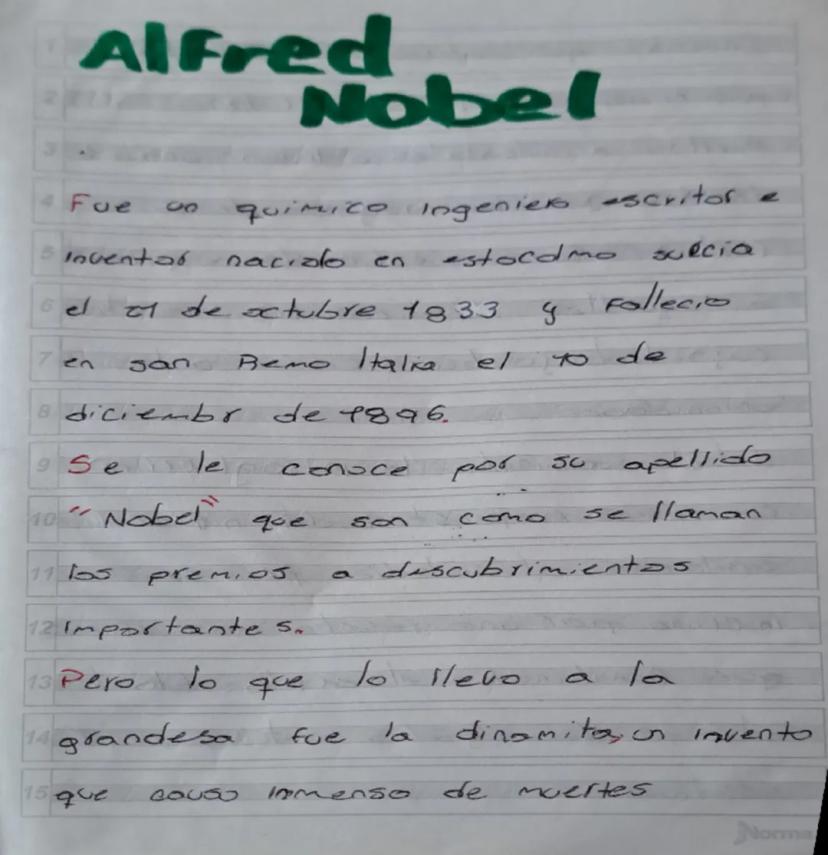 Alfred
Nobel
Fue un quimico ingeniero escritor e
inventor nacido en estocolmo suecia
el 21 de octubre 1833 y fallecio
en san Remo Italia el 10 de
diciembr de 1896.
Se le conoce por su apellido
"Nobel" que son como se llaman
los premios a descubrimientos
importantes.
Pero lo que lo llevo a la
grandesa fue la dinamita, un invento
que causo inmenso de muertes
Norma